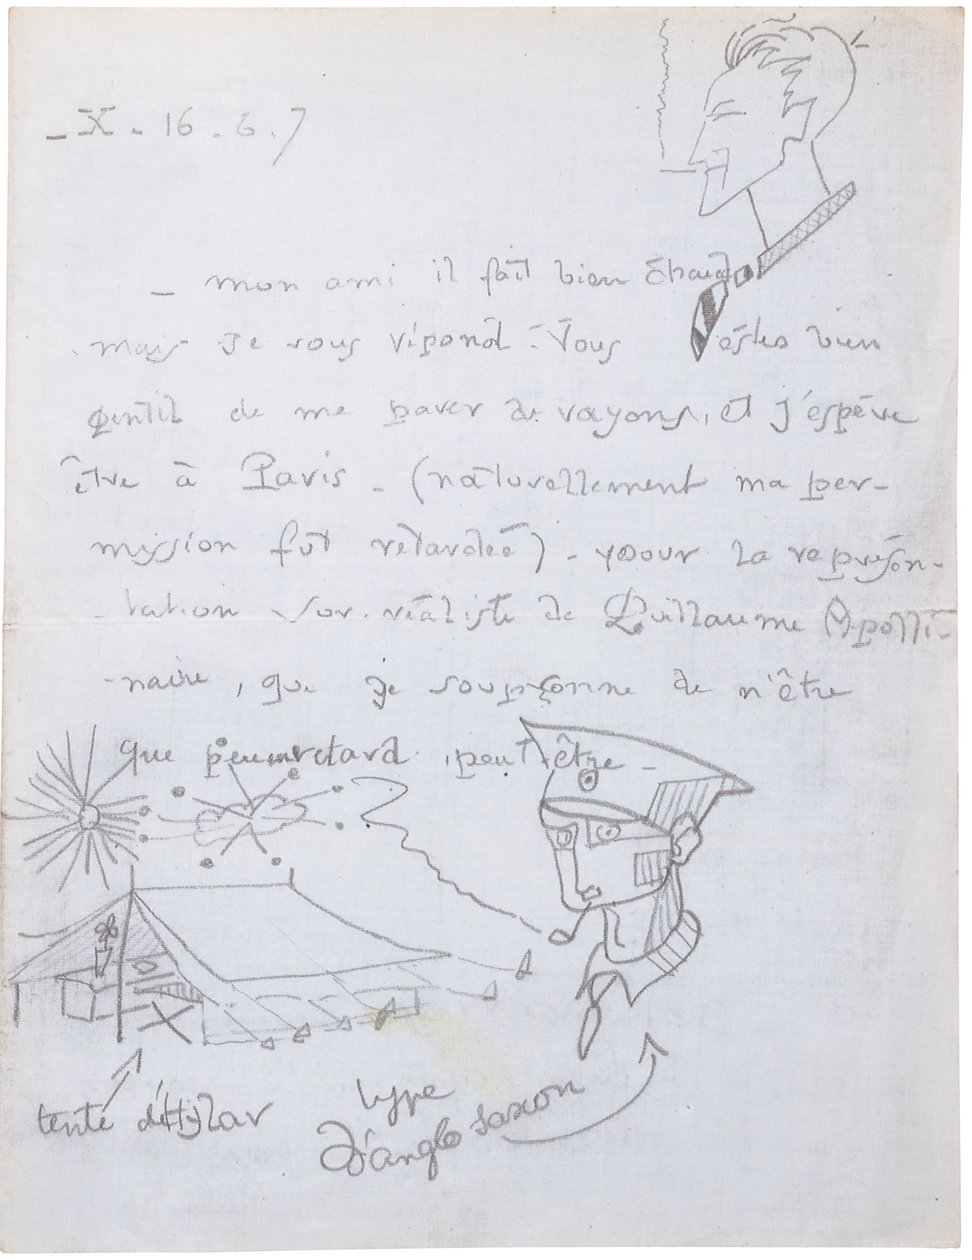 _ X. 16.6.7
_ mon ami il fait bien chaud
mais je vous répond - Vous êstes bien
gentil de me parer de rayons, et j'espère
être à Paris - (naturellement ma per-
mission fut retardée) - pour la représen-
-tation sur-réaliste de Guillaume Apolli-
-naire, que je soupçonne de n'être
que peu en retard, peut être -
tente d'Hylar
type
d'anglo saxon